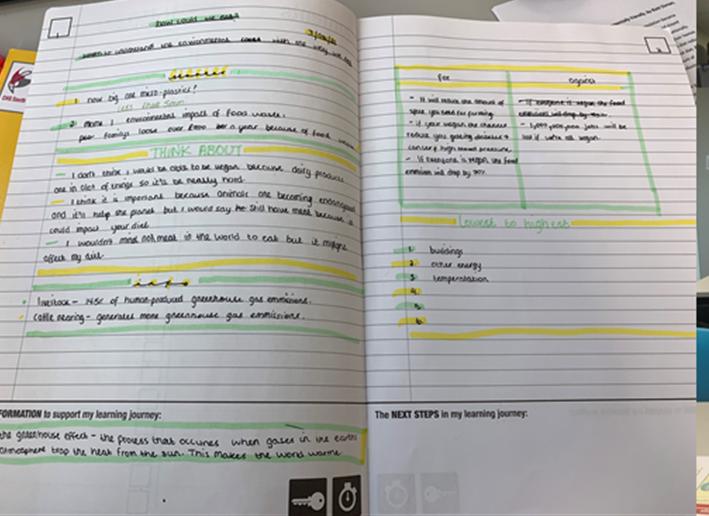 how could we eat
learn to understand the environmental when the way we eat
starter
1 how big are micro-plastics?
less than 5mm
2 Name 1 environmental impact of food waste.
familys loose over £700 a year because of food waste
THINK ABOUT
- I don't think I would be able to be vegan because daily products
are in alot of things so it'll be really hard.
- I think it is important because animals are becoming endangered
and it'll help the planet but I would say still have meat because it
could impact your diet
- I wouldn't mind not meat in the world to eat but it might
affect my diet
info
livestock - 14.5% of human-produced greenhouse gas emmisions.
cattle rearing - generates more greenhouse gas emmisions.
FORMATION to support my learning journey:
the greenhouse effect - the process that occures when gases in the earths
atmosphere trap the heat from the sun. This makes the world warme
for against
- It will reduce the amount of
space you need for farming
- if your vegan the chances
reduce you getting diabetes &
cancer & high blood pressure
- If everyone is vegan the food
emmision will drop by 70%.
- If everyone is vegan the food
emmisions will drop by 70%
- jobs will be
lost if we're all vegan
Lowest to highest
1 buildings
2 other energy
3 temperntation
4
5
6
The NEXT STEPS in my learning journey: